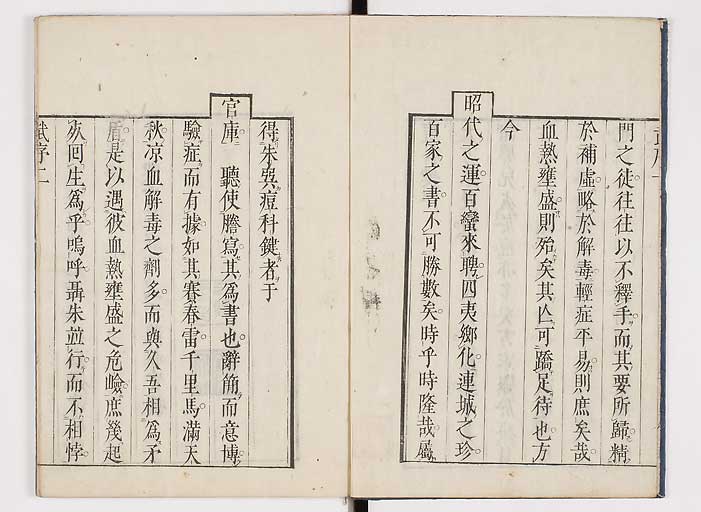 門之徒往往以不釋手而其要所歸精
於補虛略於解毒輕症平易則庶矣哉
血熱壅盛則殆矣其亡可蹻足待也方
今
昭代之運百蠻來聘四夷鄉化連城之珍
百家之書不可勝數矣時乎時隆哉屬
得朱巽痘科鍵者于
官庫 聽使謄寫其爲書也辭簡而意博
驗症而有據如其賽春雷千里馬滿天
秋凉血解毒之劑多而與久吾相爲矛
盾是以遇彼血熱壅盛之危嶮庶幾起
死回生爲乎嗚呼聶朱並行而不相悖
序二